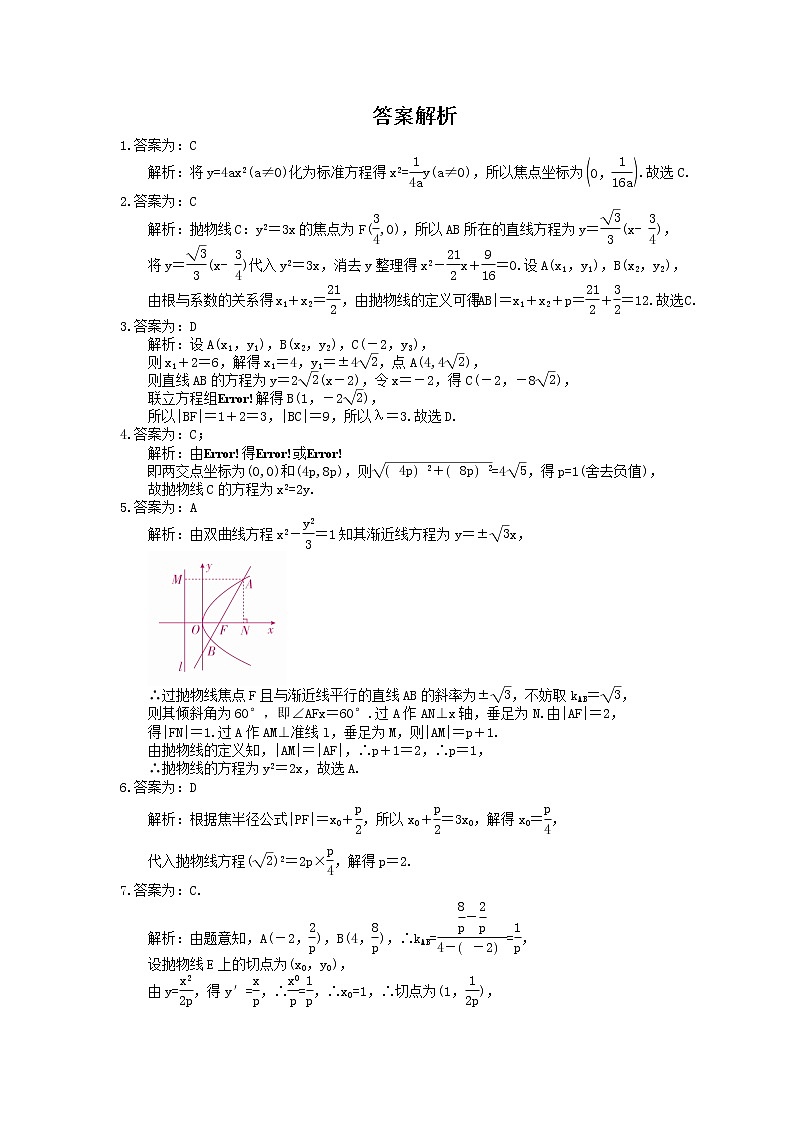 答案解析
1.答案为：C
解析：将y=4ax²(a≠0)化为标准方程得x²=\frac{1}{4a}y(a≠0)，所以焦点坐标为(0，\frac{1}{16a}).故选C.
2.答案为：C
解析：抛物线C：y²=3x的焦点为F(\frac{3}{4},0)，所以AB所在的直线方程为y＝\frac{\sqrt{3}}{3}(x－\frac{3}{4})，
将y＝\frac{\sqrt{3}}{3}(x－\frac{3}{4})代入y²＝3x，消去y整理得x²－\frac{21}{2}x＋\frac{9}{16}＝0.设A(x₁，y₁)，B(x₂，y₂)，
由根与系数的关系得x₁＋x₂＝\frac{21}{2}，由抛物线的定义可得|AB|＝x₁＋x₂＋p＝\frac{21}{2}＋\frac{3}{2}＝12.故选C.
3.答案为：D
解析：设A(x₁，y₁)，B(x₂，y₂)，C(－2，y₃)，
则x₁＋2＝6，解得x₁＝4，y₁＝±4\sqrt{2}，点A(4,4\sqrt{2})，
则直线AB的方程为y＝2\sqrt{2}(x－2)，令x＝－2，得C(－2，－8\sqrt{2})，
联立方程组Error!解得B(1，－2\sqrt{2})，
所以|BF|＝1＋2＝3，|BC|＝9，所以λ＝3.故选D.
4.答案为：C；
解析：由Error!得Error!或Error!
即两交点坐标为(0,0)和(4p,8p)，则\sqrt{( 4p) ²＋( 8p) ²}=4\sqrt{5}，得p=1(舍去负值)，
故抛物线C的方程为x²=2y.
5.答案为：A
解析：由双曲线方程x²－\frac{y²}{3}＝1知其渐近线方程为y＝±\sqrt{3}x，
y
M
A
O
F
N
x
B
l
∴过抛物线焦点F且与渐近线平行的直线AB的斜率为±\sqrt{3}，不妨取k_{AB}＝\sqrt{3}，
则其倾斜角为60°，即∠AFx＝60°.过A作AN⊥x轴，垂足为N.由|AF|＝2，
得|FN|＝1.过A作AM⊥准线l，垂足为M，则|AM|＝p＋1.
由抛物线的定义知，|AM|＝|AF|，∴p＋1＝2，∴p＝1，
∴抛物线的方程为y²＝2x，故选A.
6.答案为：D
解析：根据焦半径公式|PF|＝x₀＋\frac{p}{2}，所以x₀＋\frac{p}{2}＝3x₀，解得x₀＝\frac{p}{4}，
代入抛物线方程(\sqrt{2})²＝2p×\frac{p}{4}，解得p＝2.
7.答案为：C.
解析：由题意知，A(－2，\frac{2}{p})，B(4，\frac{8}{p})，∴k_{AB}=\frac{\frac{8}{p}－\frac{2}{p}}{4－( －2)}=\frac{1}{p}，
设抛物线E上的切点为(x₀，y₀)，
由y=\frac{x²}{2p}，得y′=\frac{x}{p}，∴\frac{x0}{p}=\frac{1}{p}，∴x₀=1，∴切点为(1，\frac{1}{2p})，